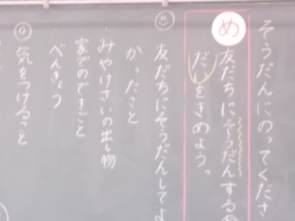 そうだんにのってくださ
め
友だちにそうだんする
だいをきめよう。
友だちにそうだんしてよ
かったこと
みやけさいの出し物
家でのできごと
べんきょう
気をつけること